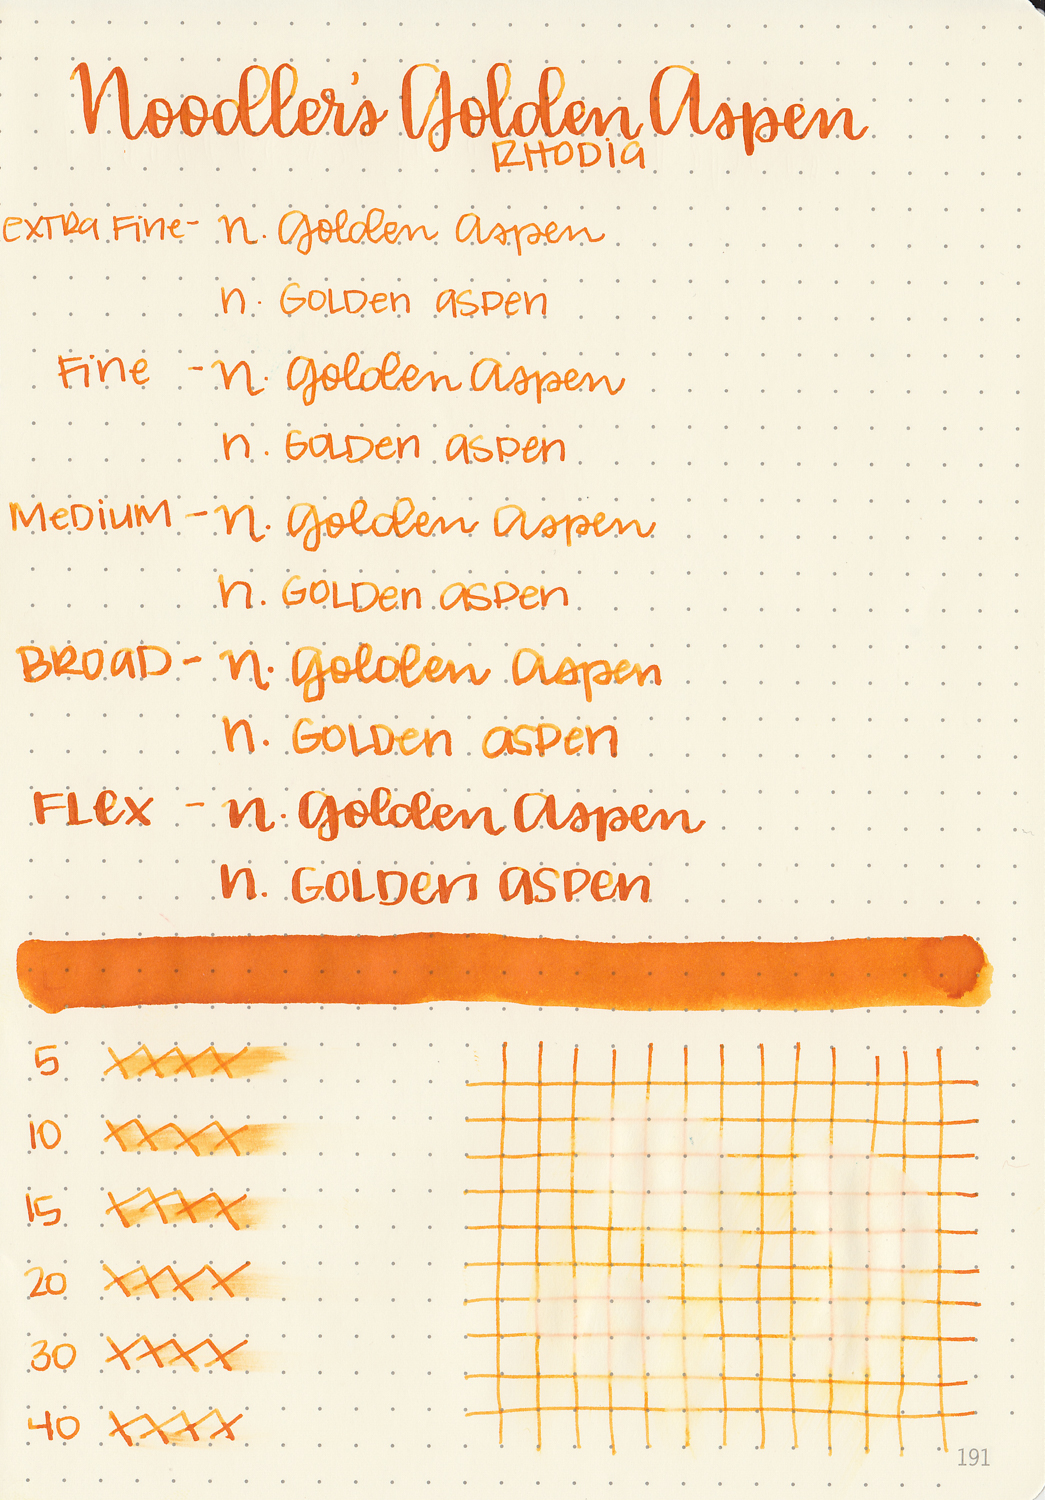 Noodler's Golden Aspen
RHODIA
EXTRA FINE- n. Golden Aspen
n. GOLDEN ASPEN
Fine - n. Golden Aspen
n. GOLDEN ASPEN
MEDIUM - n. Golden Aspen
n. GOLDEN ASPEN
BROAD - n. Golden Aspen
n. GOLDEN ASPEN
FLEX - n. Golden Aspen
n. GOLDEN ASPEN
5 XXXX
10 XXXX
15 XXXX
20 XXXX
30 XXXX
40 XXXX
191